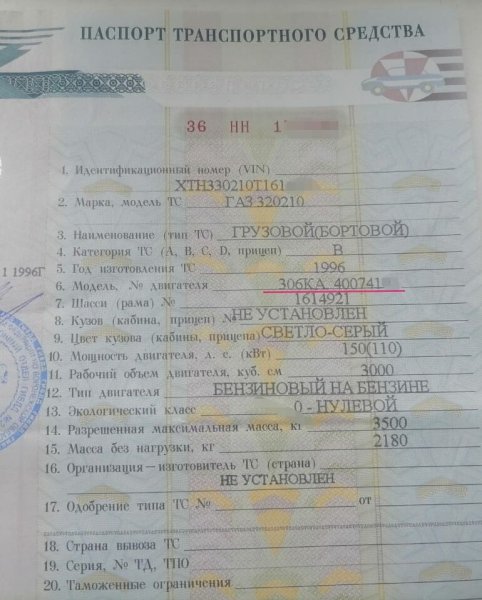 ПАСПОРТ ТРАНСПОРТНОГО СРЕДСТВА
36 НН 1
1. Идентификационный номер (VIN)
XTH330210T161
2. Марка, модель ТС ГАЗ 320210
3. Наименование (тип ТС) ГРУЗОВОЙ(БОРТОВОЙ)
4. Категория ТС (А, В, С, D, прицеп) В
5. Год изготовления ТС 1996
1 1996г
6. Модель, № двигателя 306КА, 400741
7. Шасси (рама) № 1614921
8. Кузов (кабина, прицеп) № НЕ УСТАНОВЛЕН
9. Цвет кузова (кабины, прицепа) СВЕТЛО-СЕРЫЙ
10. Мощность двигателя, л. с. (кВт) 150(110)
11. Рабочий объем двигателя, куб. см 3000
12. Тип двигателя БЕНЗИНОВЫЙ НА БЕНЗИНЕ
13. Экологический класс 0 - НУЛЕВОЙ
14. Разрешенная максимальная масса, кг 3500
15. Масса без нагрузки, кг 2180
16. Организация-изготовитель ТС (страна)
НЕ УСТАНОВЛЕН
17. Одобрение типа ТС № от
18. Страна вывоза ТС
19. Серия, № ТД, ТПО
20. Таможенные ограничения